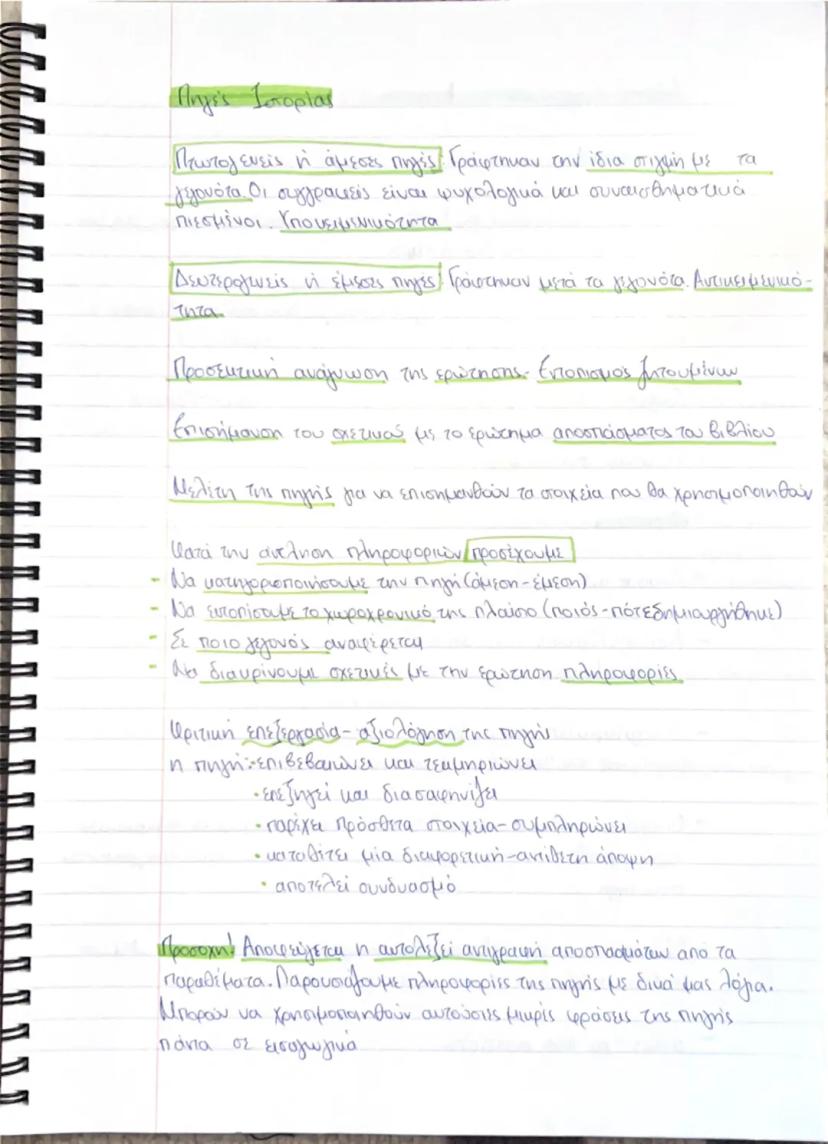 Πηγές Ιστορίας
Πρωτογενείς ή άμεσες πηγές: Γράφτηκαν την ίδια στιγμή με τα
γεγονότα. Οι συγγραφείς είναι ψυχολογικά και συναισθηματικά
πιεσμένοι. Υποκειμενικότητα
Δευτερογενείς ή έμεσες πηγές: Γράφτηκαν μετά τα γεγονότα. Αντικειμενικό-
τητα.
Προσεκτική ανάγνωση της ερώτησης- Εντοπισμός ζητουμένων
Επισήμανση του σχετικού με το ερώτημα αποσπάσματος του βιβλίου
Μελέτη της πηγής για να επισημανθούν τα στοιχεία που θα χρησιμοποιηθούν
Κατά την άντληση πληροφοριών προσέχουμε
- Να κατηγοριοποιήσουμε την πηγή (άμεση-έμεση)
- Να εντοπίσουμε το χωροχρονικό της πλαίσιο (ποιός-πότε δημιουργήθηκε)
- Σε ποιο γεγονός αναφέρεται
- Να διακρίνουμε σχετικές με την ερώτηση πληροφορίες.
Κριτική επεξεργασία-αξιολόγηση της πηγή
η πηγή:•επιβεβαιώνει και τεκμηριώνει
•επεξηγεί και διασαφηνίζει
•παρέχει πρόσθετα στοιχεία-συμπληρώνει
•καταθέτει μία διαφορετική-αντίθετη άποψη
•αποτελεί συνδυασμό
Προσοχή! Αποφεύγεται η αυτολεξεί αντιγραφή αποσπασμάτων από τα
παραθέματα. Παρουσιάζουμε πληροφορίες της πηγής με δικά μας λόγια.
Μπορούν να χρησιμοποιηθούν αυτούσιες μικρές φράσεις της πηγής
πάντα σε εισαγωγικά